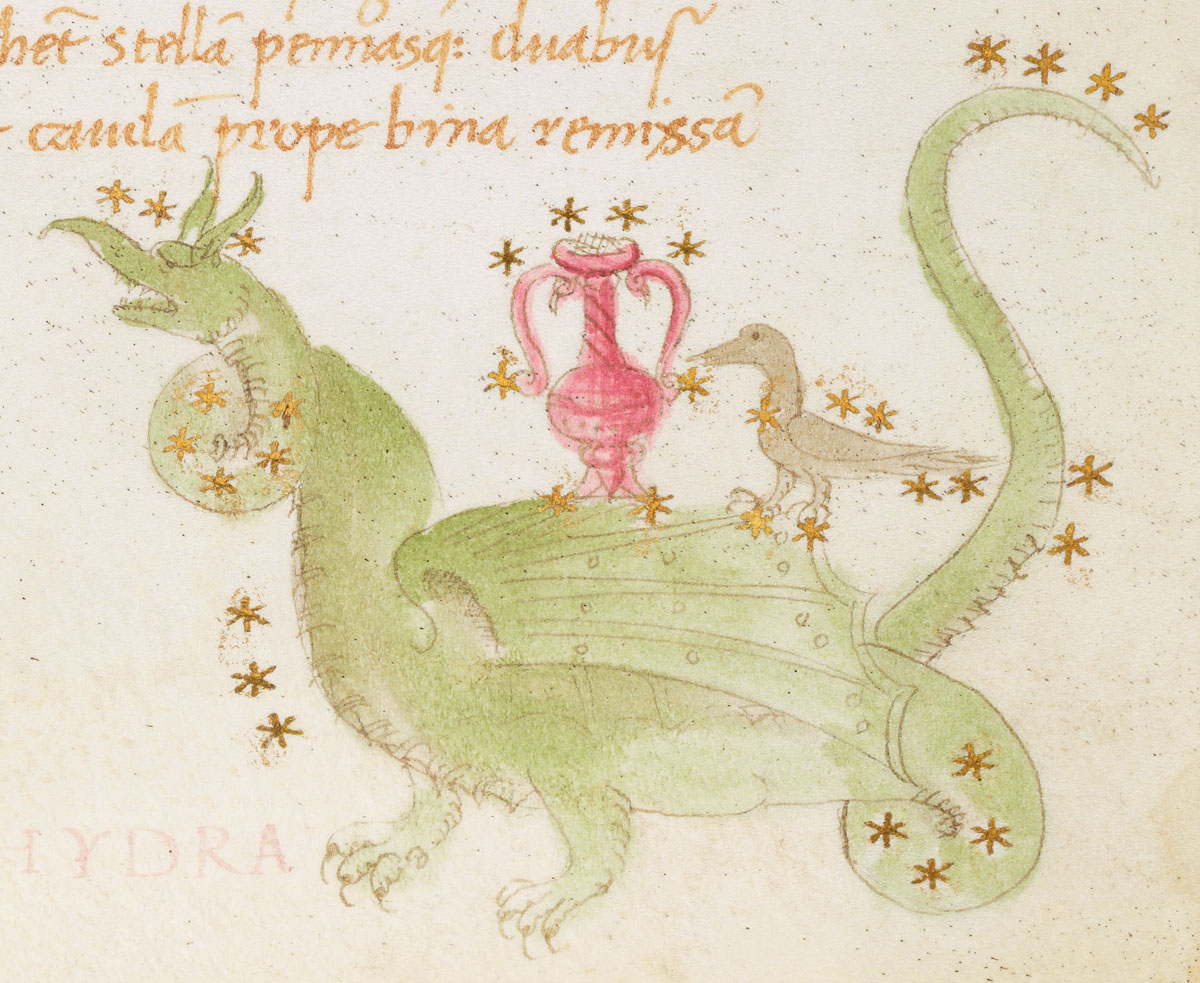 hēt stellā pennasq: duabus
caudā prope bina remissā
HYDRA